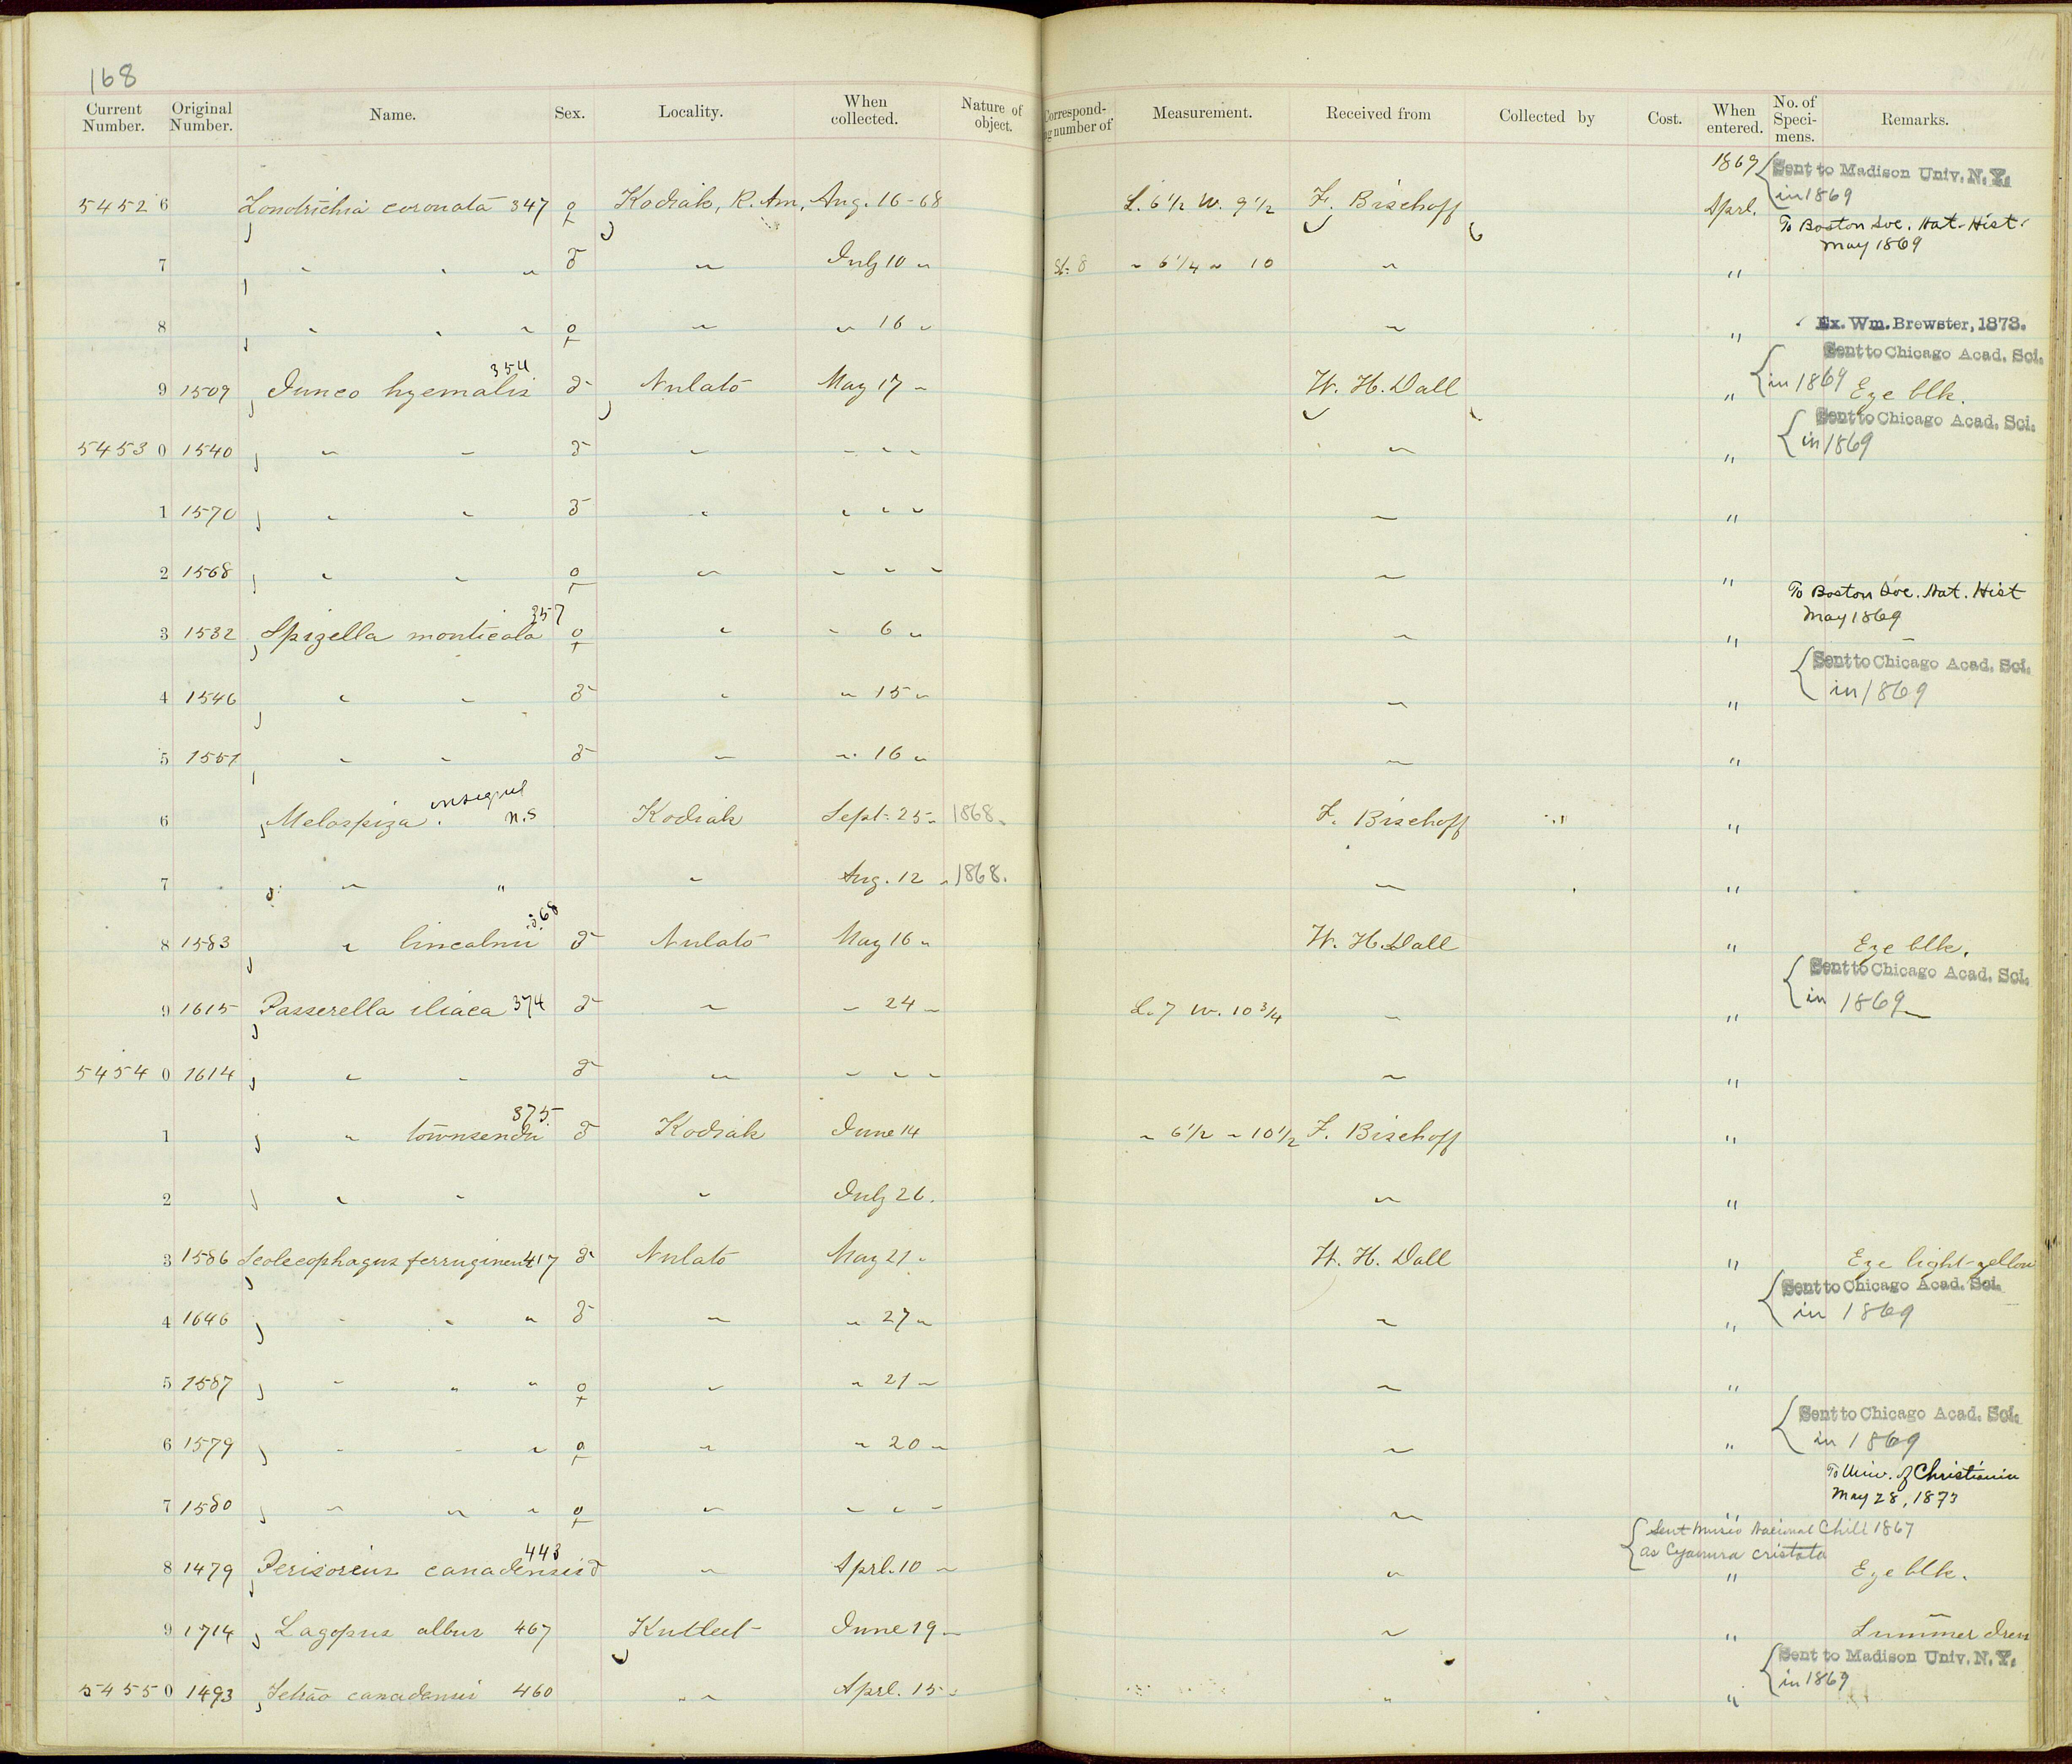 168
Current Number. Original Number. Name. Sex. Locality. When collected. Nature of object. Correspond- ing number of Measurement. Received from Collected by Cost. When entered. No. of Speci- mens. Remarks.
1869 Sent to Madison Univ. N. Y.
5452 6 Zonotrichia coronata 347 ♀ Kodiak, R. Am, Aug. 16-68 L. 6 1/2 W. 9 1/2 F. Bischoff Aprl. in 1869
To Boston Soc. Nat. Hist.
May 1869
7 " " " ♂ " July 10 " St. 8 " 6 1/4 " 10 " "
8 " " " ♀ " " 16 " " " Ex. Wm. Brewster, 1873.
Sent to Chicago Acad. Sci.
in 1869
9 1509 Junco hyemalis 354 ♂ Nulato May 17 " W. H. Dall " Eye blk.
Sent to Chicago Acad. Sci.
5453 0 1540 " " ♂ " " " " " " in 1869
1 1570 " " ♂ " " " " " "
2 1568 " " ♀ " " " " " "
To Boston Soc. Nat. Hist
May 1869
3 1532 Spizella monticola 357 ♀ " " 6 " " " "
Sent to Chicago Acad. Sci.
4 1546 " " ♂ " " 15 " " " in 1869
5 1551 " " ♂ " " 16 " " "
6 Melospiza insignis n.s Kodiak Sept. 25 " 1868. F. Bischoff "
7 " " " Aug. 12 " 1868. " "
8 1583 " lincolnii 368 ♂ Nulato May 16 " W. H. Dall " Eye blk.
Sent to Chicago Acad. Sci.
9 1615 Passerella iliaca 374 ♂ " " 24 " L. 7 W. 10 3/4 " " in 1869
5454 0 1614 " " ♂ " " " " " "
1 " townsendii 375. ♂ Kodiak June 14 " 6 1/2 " 10 1/2 F. Bischoff "
2 " " " July 26. " "
3 1586 Scolecophagus ferrugineus 417 ♂ Nulato May 21 " W. H. Dall " Eye light-yellow
Sent to Chicago Acad. Sci.
4 1646 " " " ♂ " " 27 " " " in 1869
5 1587 " " " ♀ " " 21 " " "
Sent to Chicago Acad. Sci.
6 1579 " " " ♀ " " 20 " " " in 1869
To Univ. of Christiania
May 28, 1873
7 1580 " " " ♀ " " " " " "
Sent Museo Nacional Chili 1867
as Cyanura cristata
8 1479 Perisoreus canadensis 443 ♂ " Aprl. 10 " " " Eye blk.
9 1714 Lagopus albus 467 Kutleet June 19 " " " Summer dress
Sent to Madison Univ. N. Y.
5455 0 1493 Tetrao canadensis 460 " " Aprl. 15 " " " in 1869